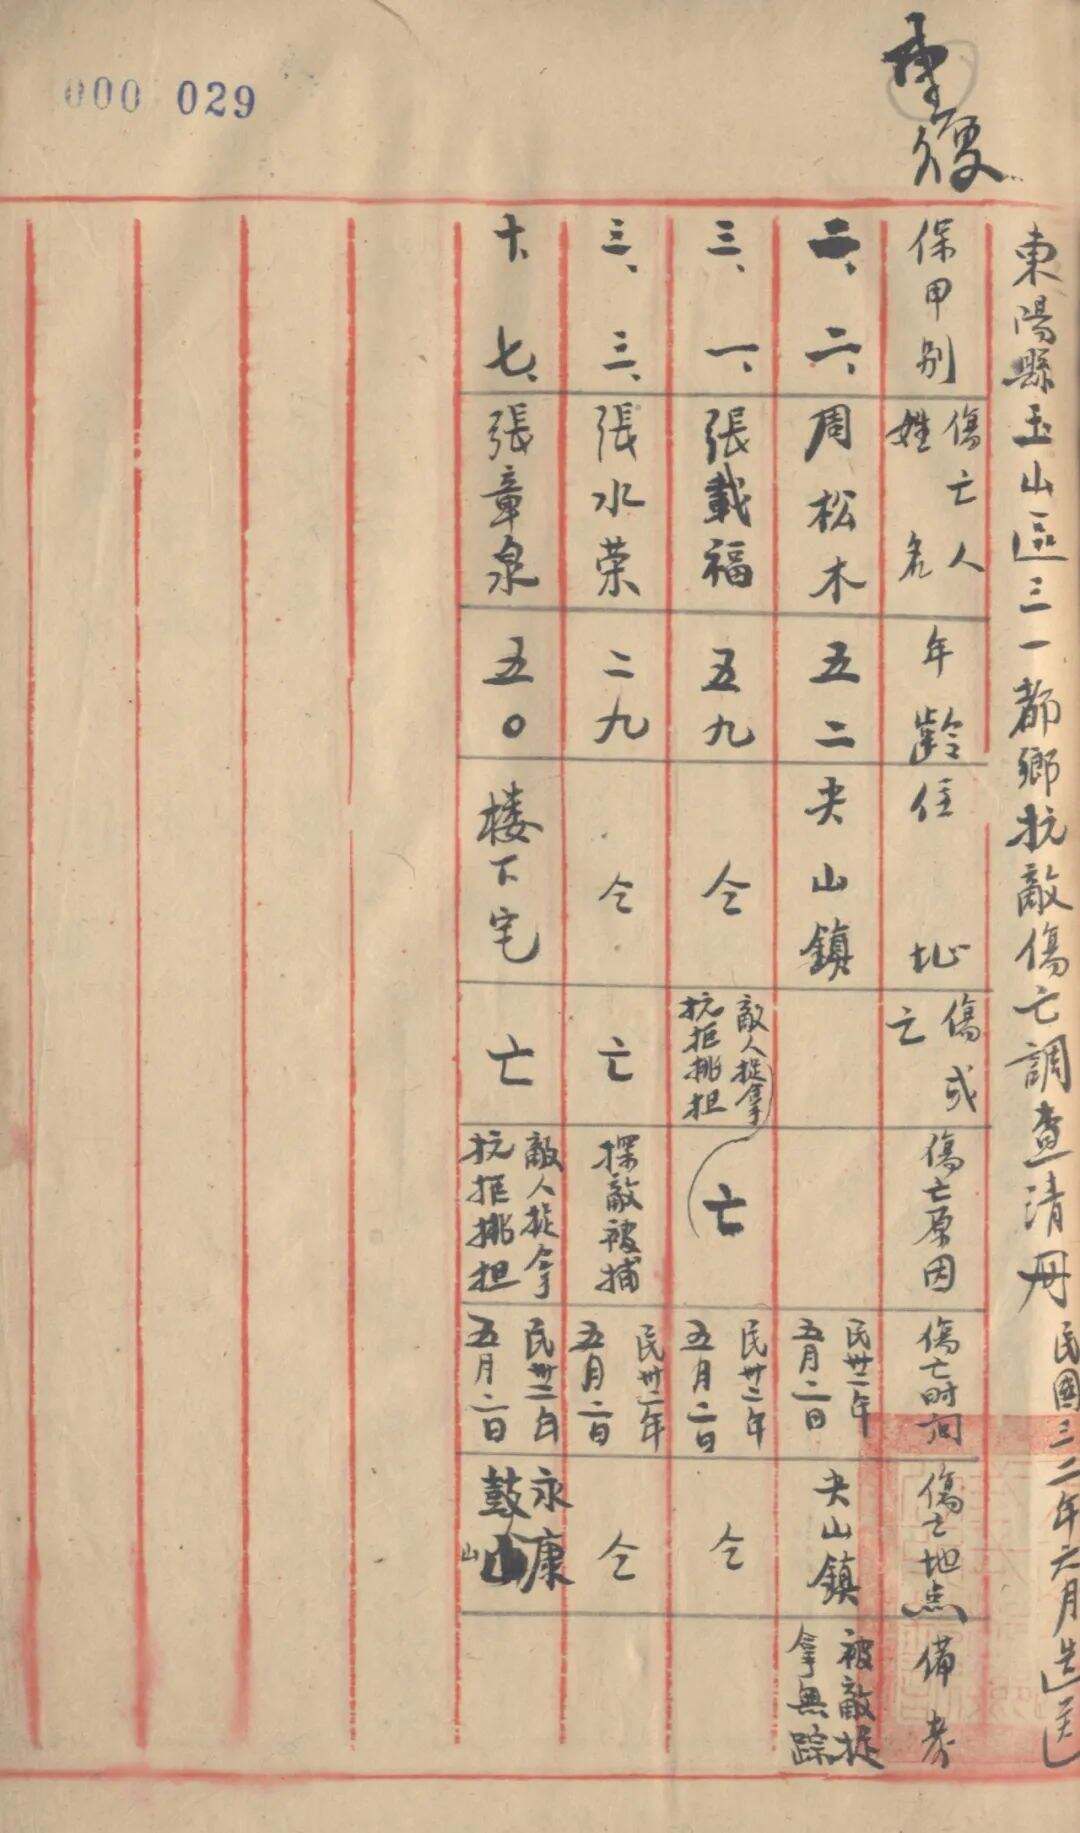 000 029
重復
東陽縣玉山區三一都鄉抗敵傷亡調查清冊 民國三二年六月造送
保甲別
傷亡人
姓名
年齡
住址
傷或
亡
傷亡原因
傷亡時间
傷亡地点
備考
二、二、
周松木
五二
夹山鎮
民卅二年
五月二日
夹山鎮
被敵捉
拿無踪
三、一、
張載福
五九
仝
敵人捉拿
抗拒挑担
亡
民卅二年
五月二日
仝
三、三、
張水荣
二九
仝
亡
探敵被捕
民卅二年
五月二日
仝
十、七、
張章泉
五〇
楼下宅
亡
敵人捉拿
抗拒挑担
民卅二年
五月二日
永康
鼓山
山